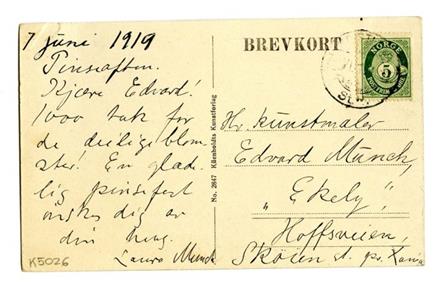 7 juni 1919
Pinseaften.
Kjære Edvard!
1000 tak for
de deilige blom-
ster! En glæde-
lig pinsefest
ønskes dig av
din heng.
Laura Munch
K5026
No. 2847 Kilenboldts Kunstforlag
BREVKORT
NORGE
5
POSTFRIM
Hr. kunstmaler
Edvard Munch,
"Ekely",
Hoffsveien,
Skøien st. pr. Kania